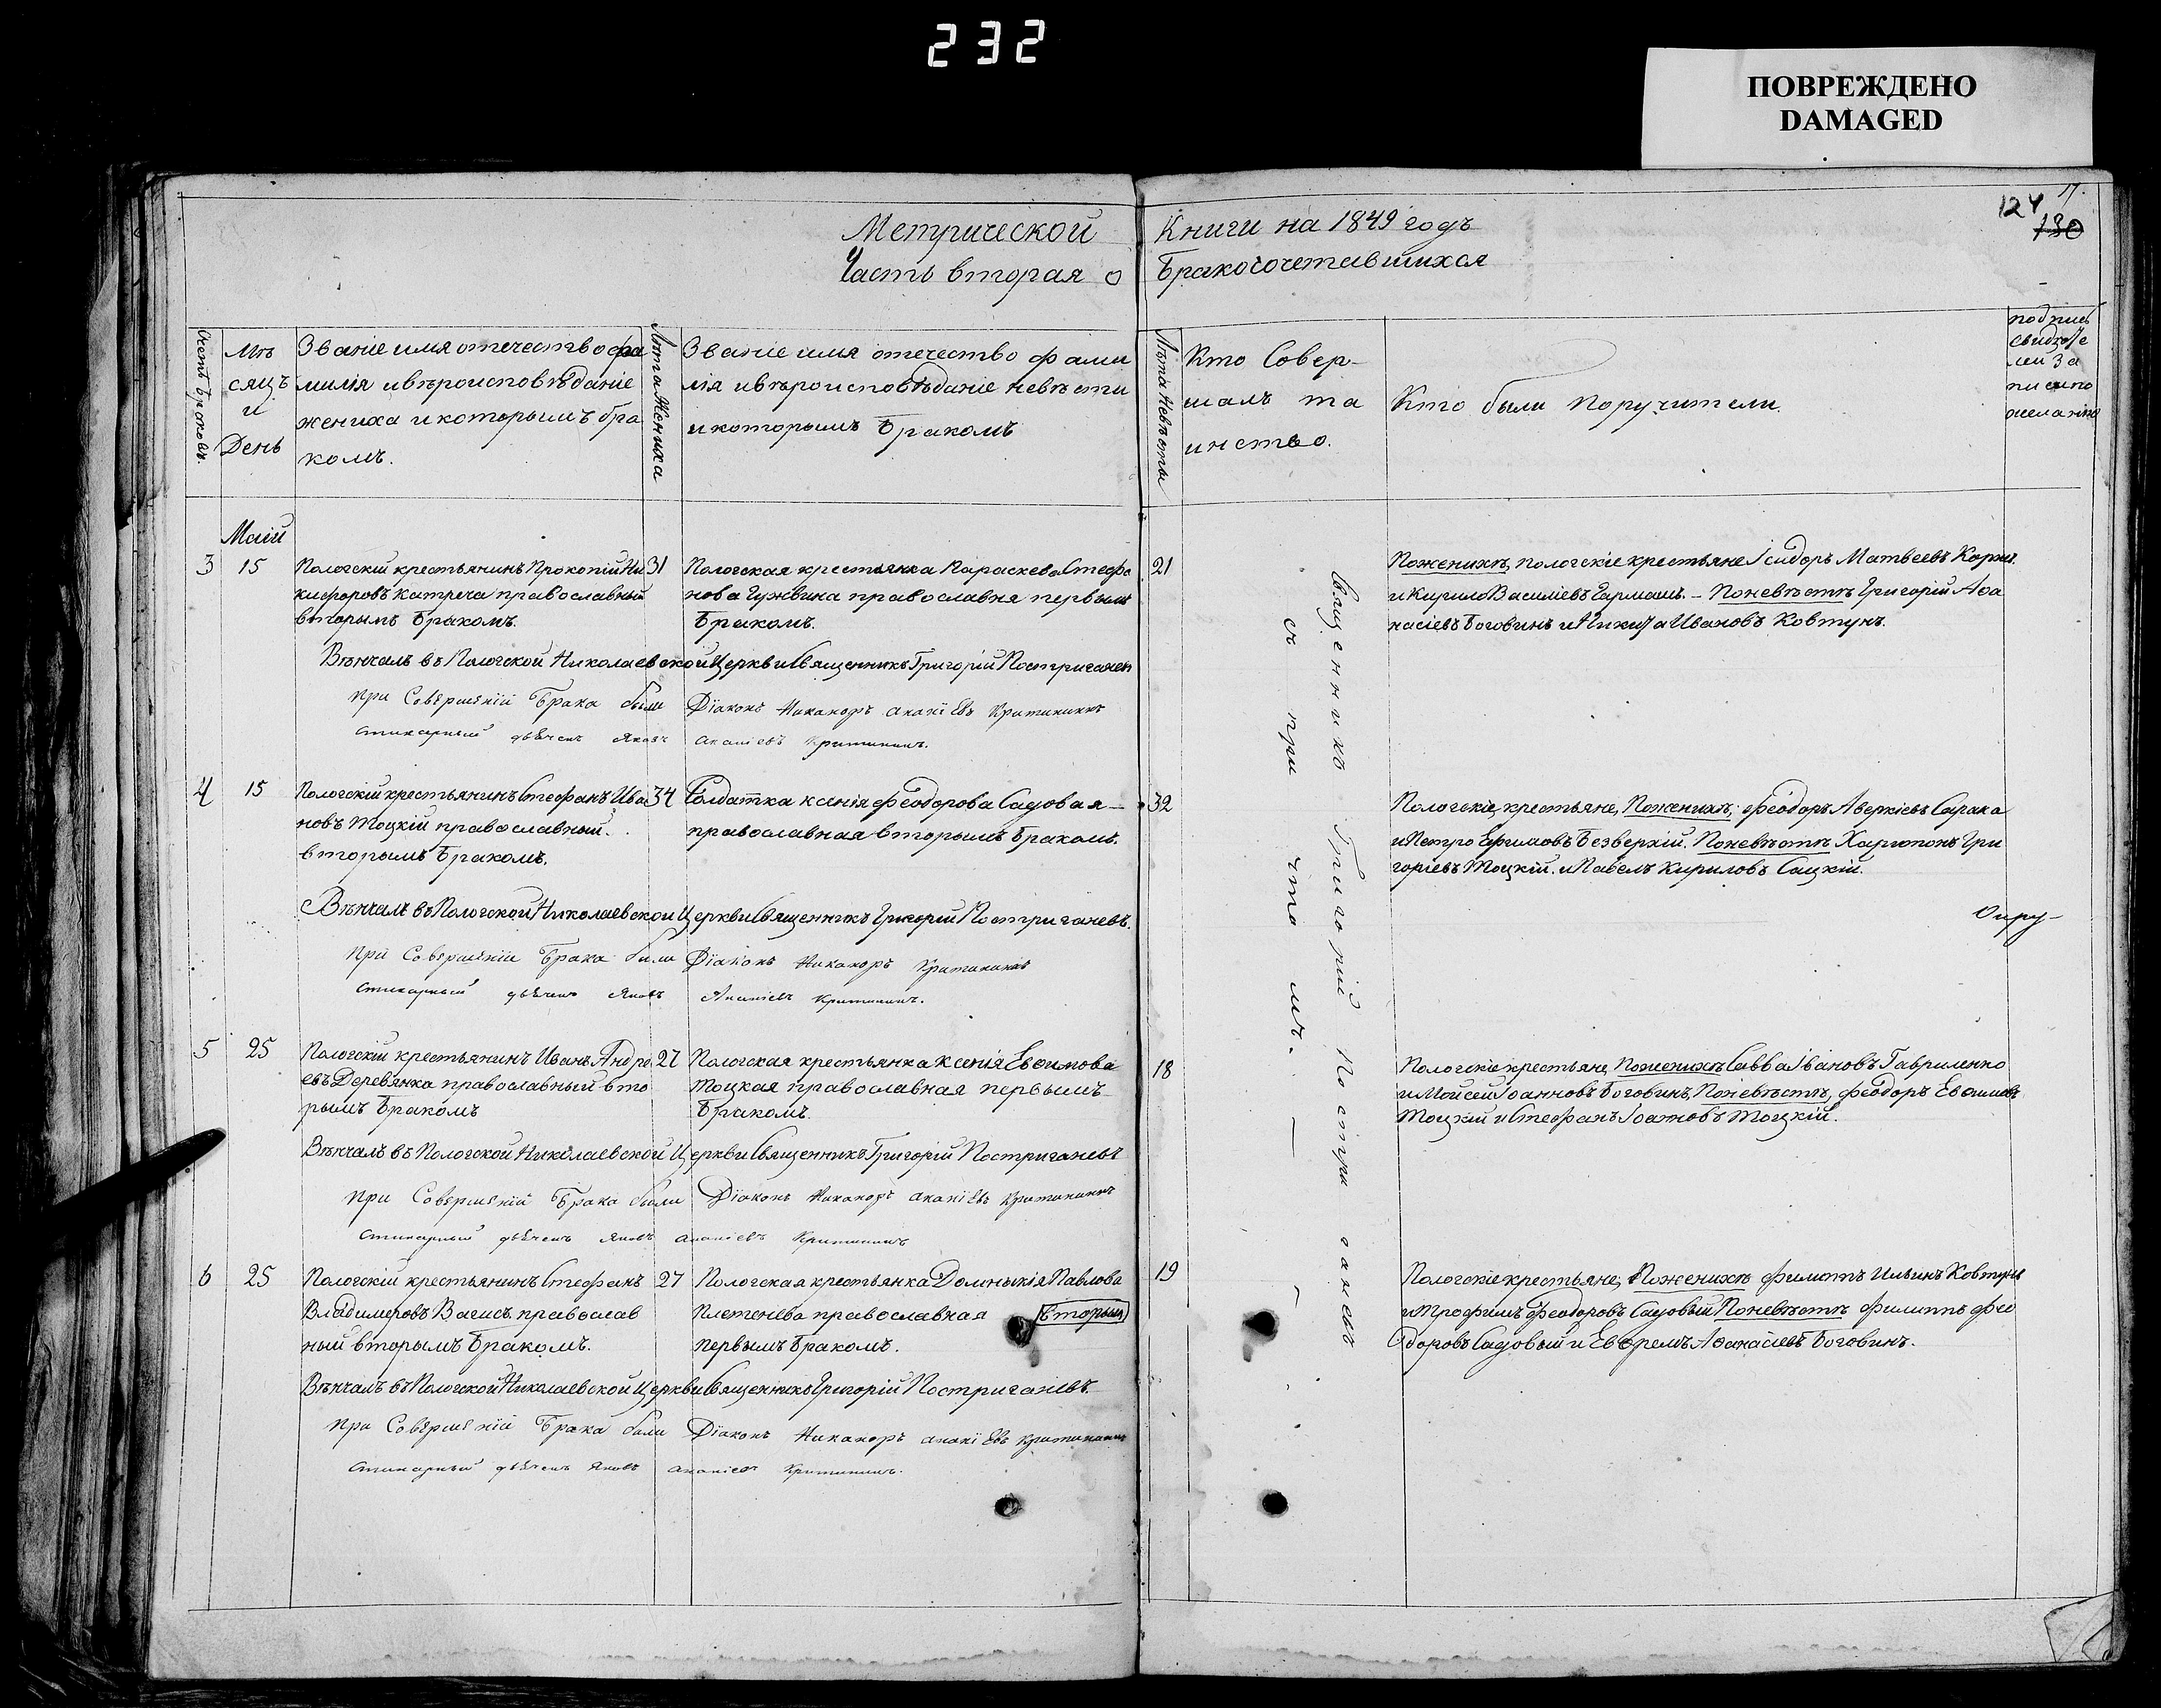 232
ПОВРЕЖДЕНО
DAMAGED
17.
124
130
Метрической Книги на 1849 годъ
Часть вторая о Бракосочетавшихся
Счетъ Браковъ.
Мѣ
сяцъ
и
День
Званіе имя отечество фа
милія и вѣроисповѣданіе
жениха и которымъ бра
комъ.
Лѣта Жениха
Званіе имя отечество фами
лія и вѣроисповѣданіе невѣсти
и которымъ Бракомъ
Лѣта Невѣсты
Кто Совер-
шалъ та
инство.
Кто были Поручители.
подпись
свидѣте
лей за
писи по
желанію
Маій
3 15
Пологскій крестьянинъ Прокопій Ни
кифоровъ Катреча православный
вторымъ Бракомъ.
31
Пологская крестьянка Параскева Стефа
нова Гужвина православня первымъ
Бракомъ.
21
Поженихѣ, пологскіе крестьяне Ісидоръ Матвеевъ
и Кирило Василіевъ Гармашъ. - Поневѣстѣ Григорій Афа
насіевъ Боговинъ и Никита Ивановъ Ковтунъ.
Вѣнчалъ въ Пологской Николаевской Церкви Священникъ Григорій
при Совершеніи Брака были Діаконъ Никаноръ Ананіевъ
стихарный дьячекъ Яковъ Ананіевъ
4 15
Пологскій крестьянинъ Стефанъ Ива
новъ Тоцкій православный.
вторымъ Бракомъ.
34
Солдатка ксенія Феодорова Садовая
православная вторымъ Бракомъ.
32
Пологскіе крестьяне, Поженихѣ, Феодоръ Аверкіевъ Сарака
и Петро Ефимовъ Безверхій. Поневѣстѣ Харитонъ Гри
горіевъ Тоцкій. и Павелъ Кириловъ Сацкій.
Вѣнчалъ въ Пологской Николаевской Церкви Священникъ Григорій Постригачевъ.
при Совершеніи Брака были Діаконъ Никаноръ
стихарный дьячекъ Яковъ Ананіевъ
5 25
Пологскій крестьянинъ Иванъ Андре
евъ Деревянка православный вто
рымъ Бракомъ
27
Пологская крестьянка ксенія Евфимова
Тоцкая православная первымъ
Бракомъ.
18
Пологскіе крестьяне, Поженихѣ Савва Івановъ Гавриленко
и Мойсей Іоанновъ Боговинъ, Поневѣстѣ, Феодоръ Евфимовъ
Тоцкій и Стефанъ Іоанновъ Тоцкій.
Вѣнчалъ въ Пологской Николаевской Церкви Священникъ Григорій Постригачевъ
при Совершеніи Брака были Діаконъ Никаноръ Ананіевъ
стихарный дьячекъ Яковъ Ананіевъ
6 25
Пологскій крестьянинъ Стефанъ
Владимеровъ православ
ный вторымъ Бракомъ.
27
Пологская крестьянка Домникія Павлова
Плетенева православная вторым
первымъ Бракомъ.
19
Пологскіе крестьяне, Поженихѣ Филиппъ Ильинъ Ковтунъ
и Трофимъ Феодоровъ Садовый Поневѣстѣ Филиппъ Фео
доровъ Садовый и Евфремъ Афанасіевъ Боговинъ.
Вѣнчалъ въ Пологской Николаевской Церкви Священникъ Григорій Постригачевъ.
при Совершеніи Брака были Діаконъ Никаноръ Ананіевъ
стихарный дьячекъ Яковъ Ананіевъ
Священникъ Григорій Постригачевъ
съ причтомъ.